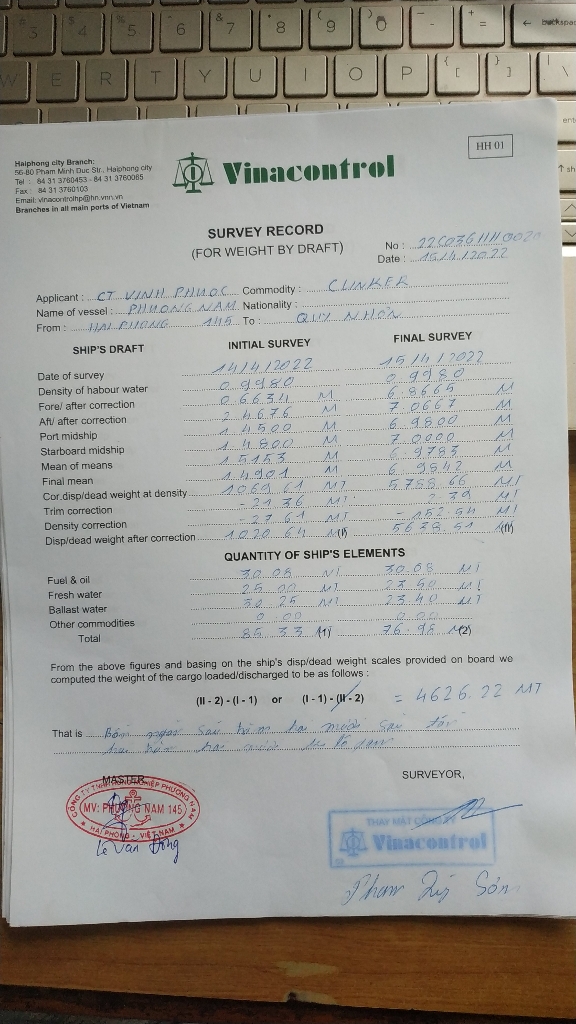 Haiphong city Branch:
56-80 Pham Minh Duc Str., Haiphong city
Tel : 84 31 3760453 - 84 31 3760065
Fax : 84 31 3760103
Email: vinacontrolhp@hn.vnn.vn
Branches in all main ports of Vietnam
Vinacontrol
HH 01
SURVEY RECORD
(FOR WEIGHT BY DRAFT)
No : 22C0361HH0020
Date : 15/4/2022
Applicant : CT VINH PHUOC Commodity : CLINKER
Name of vessel : PHUONG NAM Nationality :
From : HAI PHONG 145 To : QUY NHON
SHIP'S DRAFT INITIAL SURVEY FINAL SURVEY
Date of survey 14/4/2022 15/4/2022
Density of habour water 0.9980 0.9980
Fore/ after correction 0.6634 M 6.8665 M
Aft/ after correction 2.4676 M 7.0667 M
Port midship 1.4500 M 6.9800 M
Starboard midship 1.4800 M 7.0000 M
Mean of means 1.5153 M 6.9783 M
Final mean 1.4901 M 6.9842 M
Cor.disp/dead weight at density 1069.61 MT 5788.66 MT
Trim correction - 21.36 MT 2.39 MT
Density correction - 27.61 MT - 152.54 MT
Disp/dead weight after correction 1020.64 M(I) 5638.51 M(II)
QUANTITY OF SHIP'S ELEMENTS
Fuel & oil 30.08 MT 30.08 MT
Fresh water 25.00 MT 23.50 MT
Ballast water 30.25 MT 23.40 MT
Other commodities 0.00 0.00
Total 85.33 M(1) 76.98 M(2)
From the above figures and basing on the ship's disp/dead weight scales provided on board we
computed the weight of the cargo loaded/discharged to be as follows :
(II - 2) - (I - 1) or (I - 1) - (II - 2) = 4626.22 MT
That is Bốn ngàn sáu trăm hai mươi sáu tấn
hai trăm hai mươi
MASTER
SURVEYOR,
(MV: PHƯƠNG NAM 145)
HẢI PHÒNG - VIỆT NAM
Lê Văn Đông
THAY MẶT CÔNG TY
Vinacontrol
Sơn